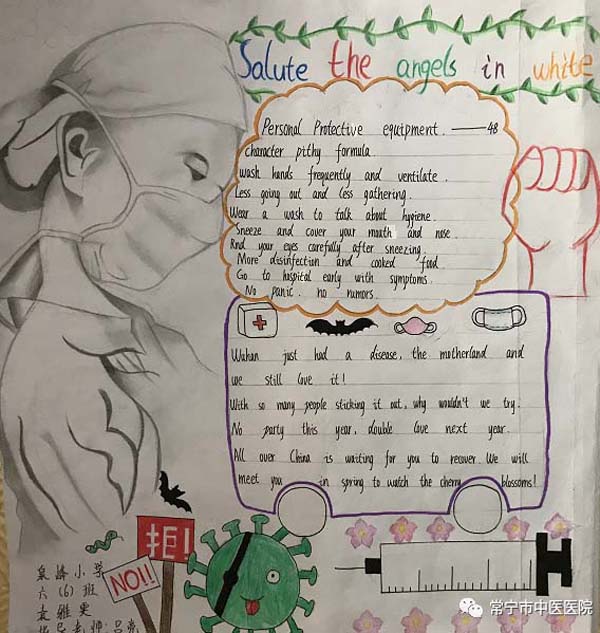 Salute the angels in white
Personal Protective equipment. —— 48
character pithy formula
wash hands frequently and ventilate.
Less going out and less gathering.
Wear a wash to talk about hygiene.
Sneeze and cover your mouth and nose.
Rnd your eyes carefully after sneezing.
More disinfection and cooked food
Go to hospital early with symptoms
No panic. no rumors.
Wuhan just had a disease, the motherland and
we still love it!
With so many people sticking it out, why wouldn't we try.
No party this year, double love next year.
All over China is waiting for you to recover. We will
meet you in spring to watch the cherry blossoms!
拒!
NO!!
泉峰小学
六(6)班
袁雅雯
老师:吕
常宁市中医医院